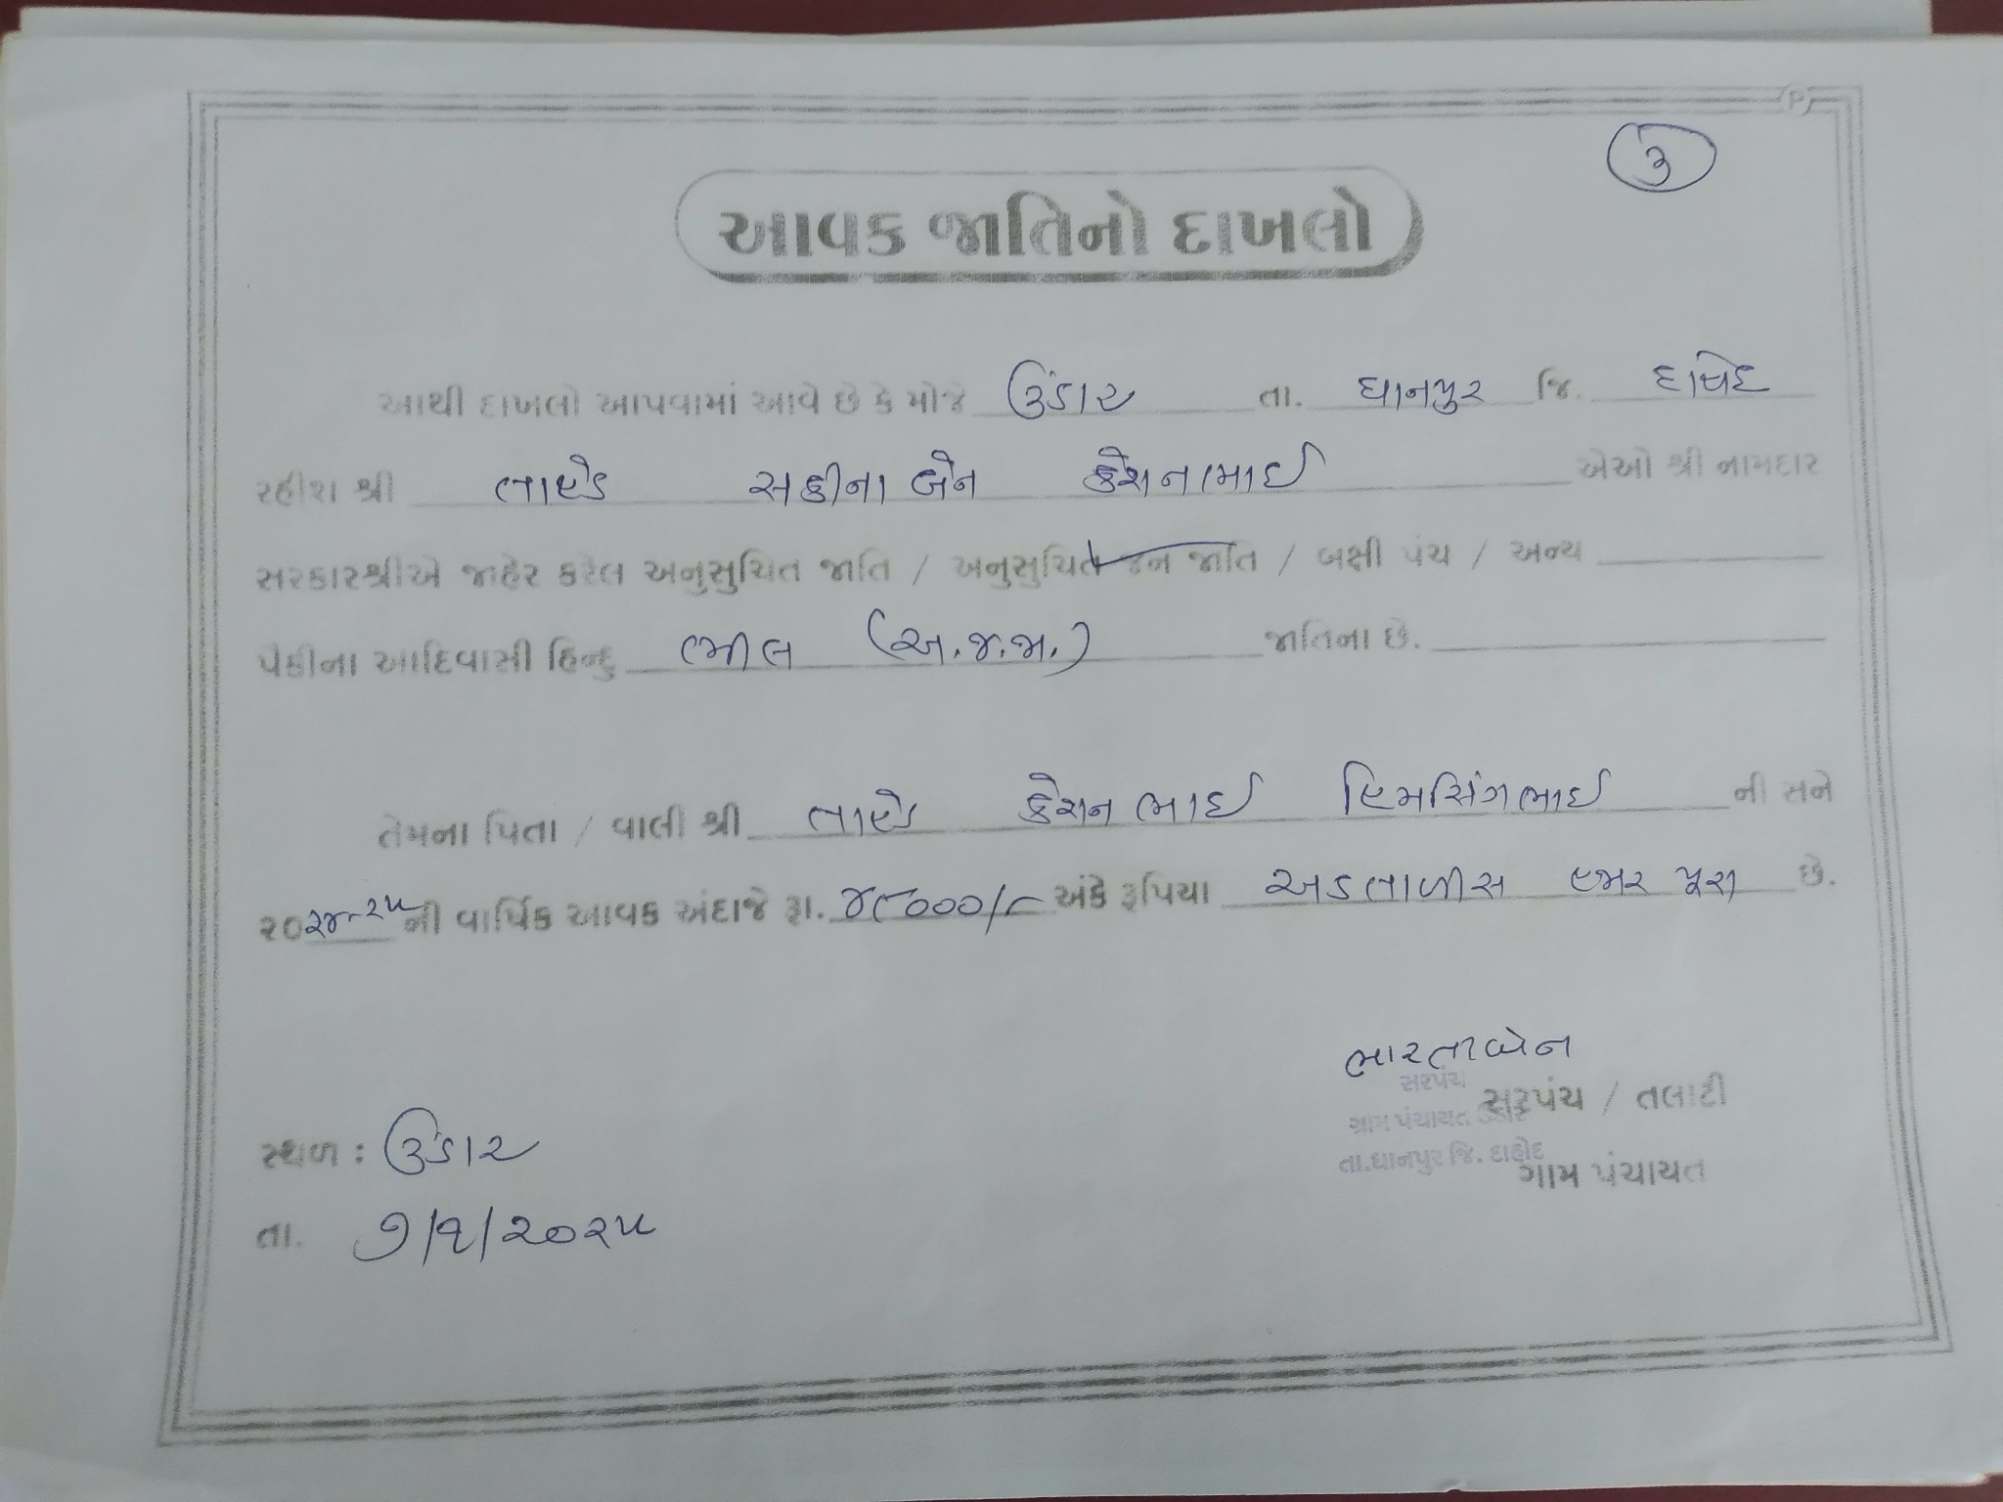 ૩
આવક જાતિનો દાખલો
આથી દાખલો આપવામાં આવે છે કે મોજે ઉંડાર તા. ધાનપુર જિ. દાહોદ
રહીશ શ્રી તાહેડ સકીના બેન કેશનભાઈ એઓ શ્રી નામદાર
સરકારશ્રીએ જાહેર કરેલ અનુસુચિત જાતિ / અનુસુચિત જન જાતિ / બક્ષી પંચ / અન્ય
પૈકીના આદિવાસી હિન્દુ ભીલ (અ.જ.જા.) જાતિના છે.
તેમના પિતા / વાલી શ્રી તાહેડ કેશન ભાઈ હિમસિંગભાઈ ની સને
૨૦૨૪-૨૫ની વાર્ષિક આવક અંદાજે રૂા. ૪૮૦૦૦/- અંકે રૂપિયા અડતાળીસ હજાર પુરા છે.
ભારતાબેન
સરપંચ
સરપંચ / તલાટી
ગ્રામ પંચાયત. ઉંડાર
તા.ધાનપુર જિ. દાહોદ
ગામ પંચાયત
સ્થળ : ઉંડાર
તા. ૭/૧/૨૦૨૫